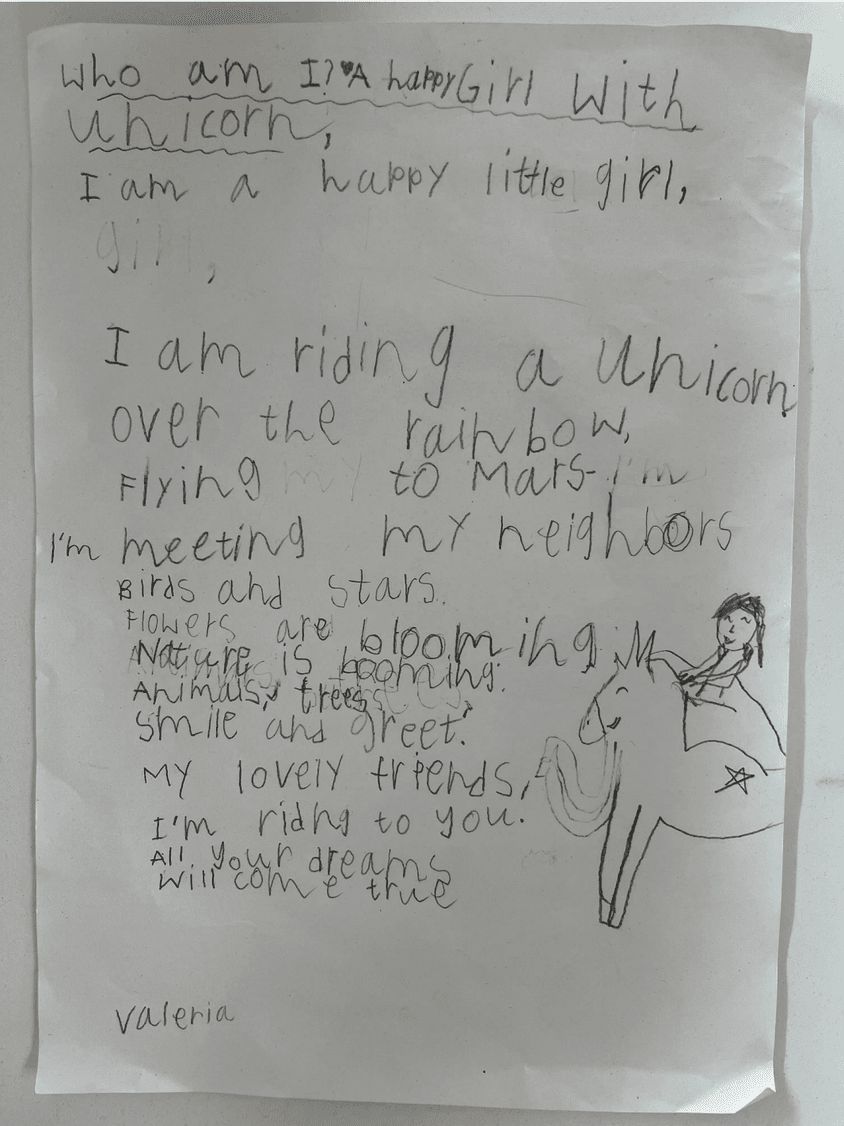 who am I? ♥A happy Girl With
unicorn,
I am a happy little girl,
girl,
I am riding a unicorn
over the rainbow,
Flying my to Mars- I'm
I'm meeting my neighbors
Birds and stars.
Flowers are blooming
Nature is booming.
Animals, trees
smile and greet.
My lovely friends,
I'm ridng to you.
All your dreams
will come true
Valeria